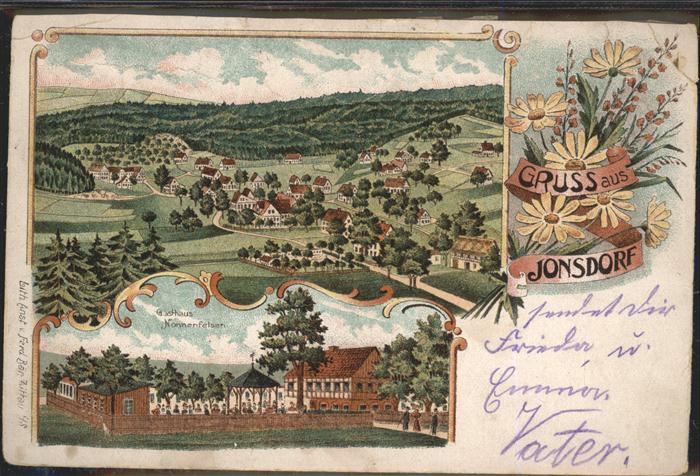 GRUSS aus
JONSDORF
Gasthaus
Nonnenfelsen
sendet Dir
Frieda u.
Emma.
Vater.
Lith. Anst. v. Ferd. Bär, Zittau